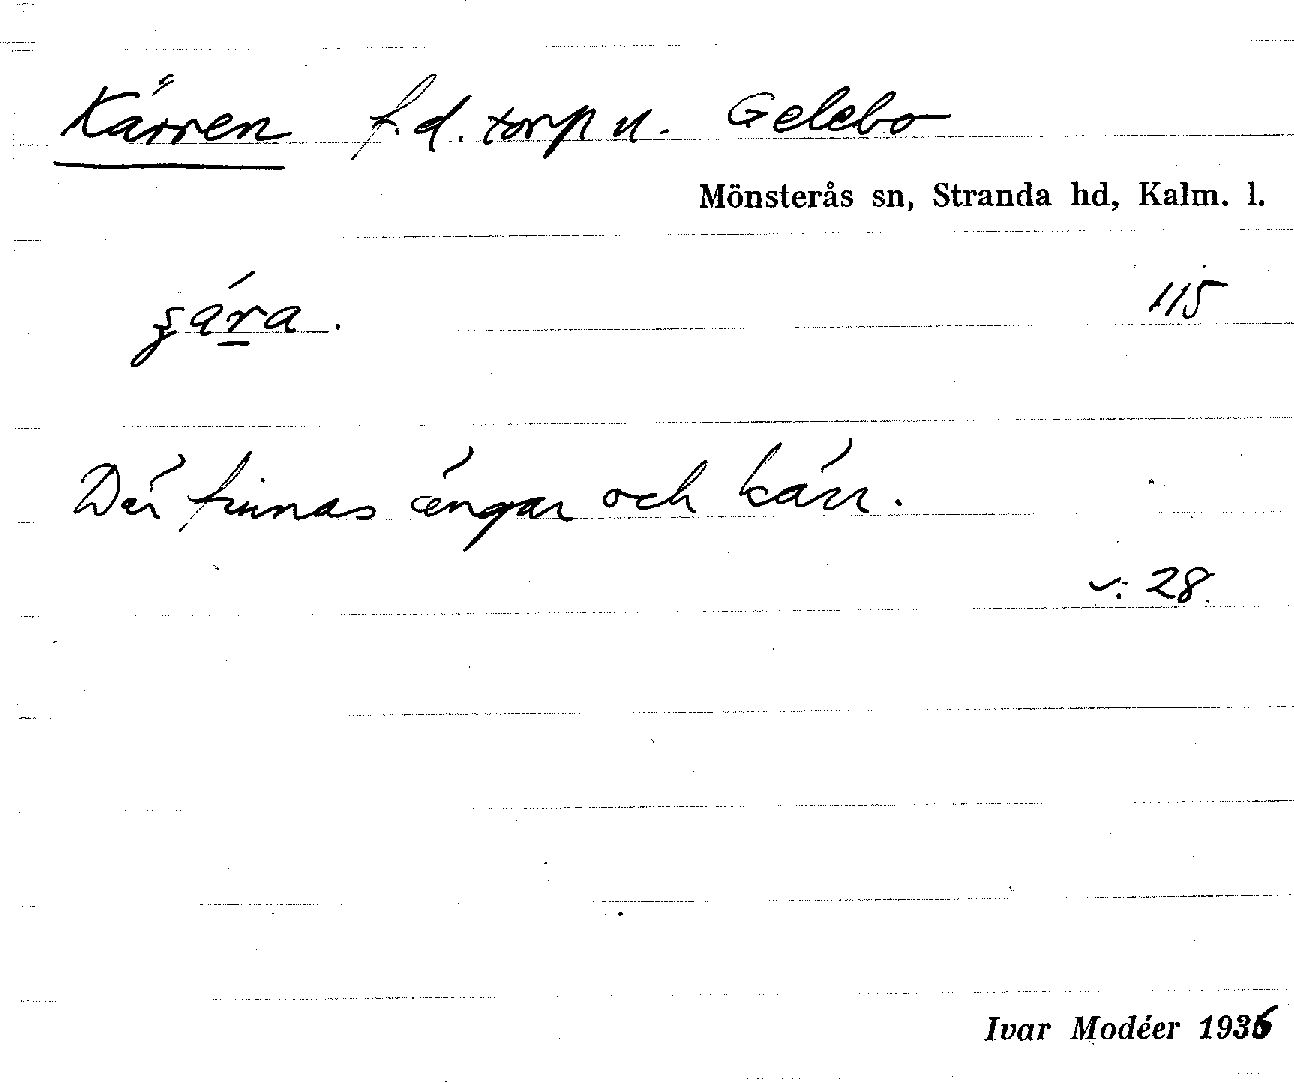 Kärren f.d. torp u. Gelebo
Mönsterås sn, Stranda hd, Kalm. l.
115
Där finnas ängar och kärr.
v: 28.
Ivar Modéer 1936